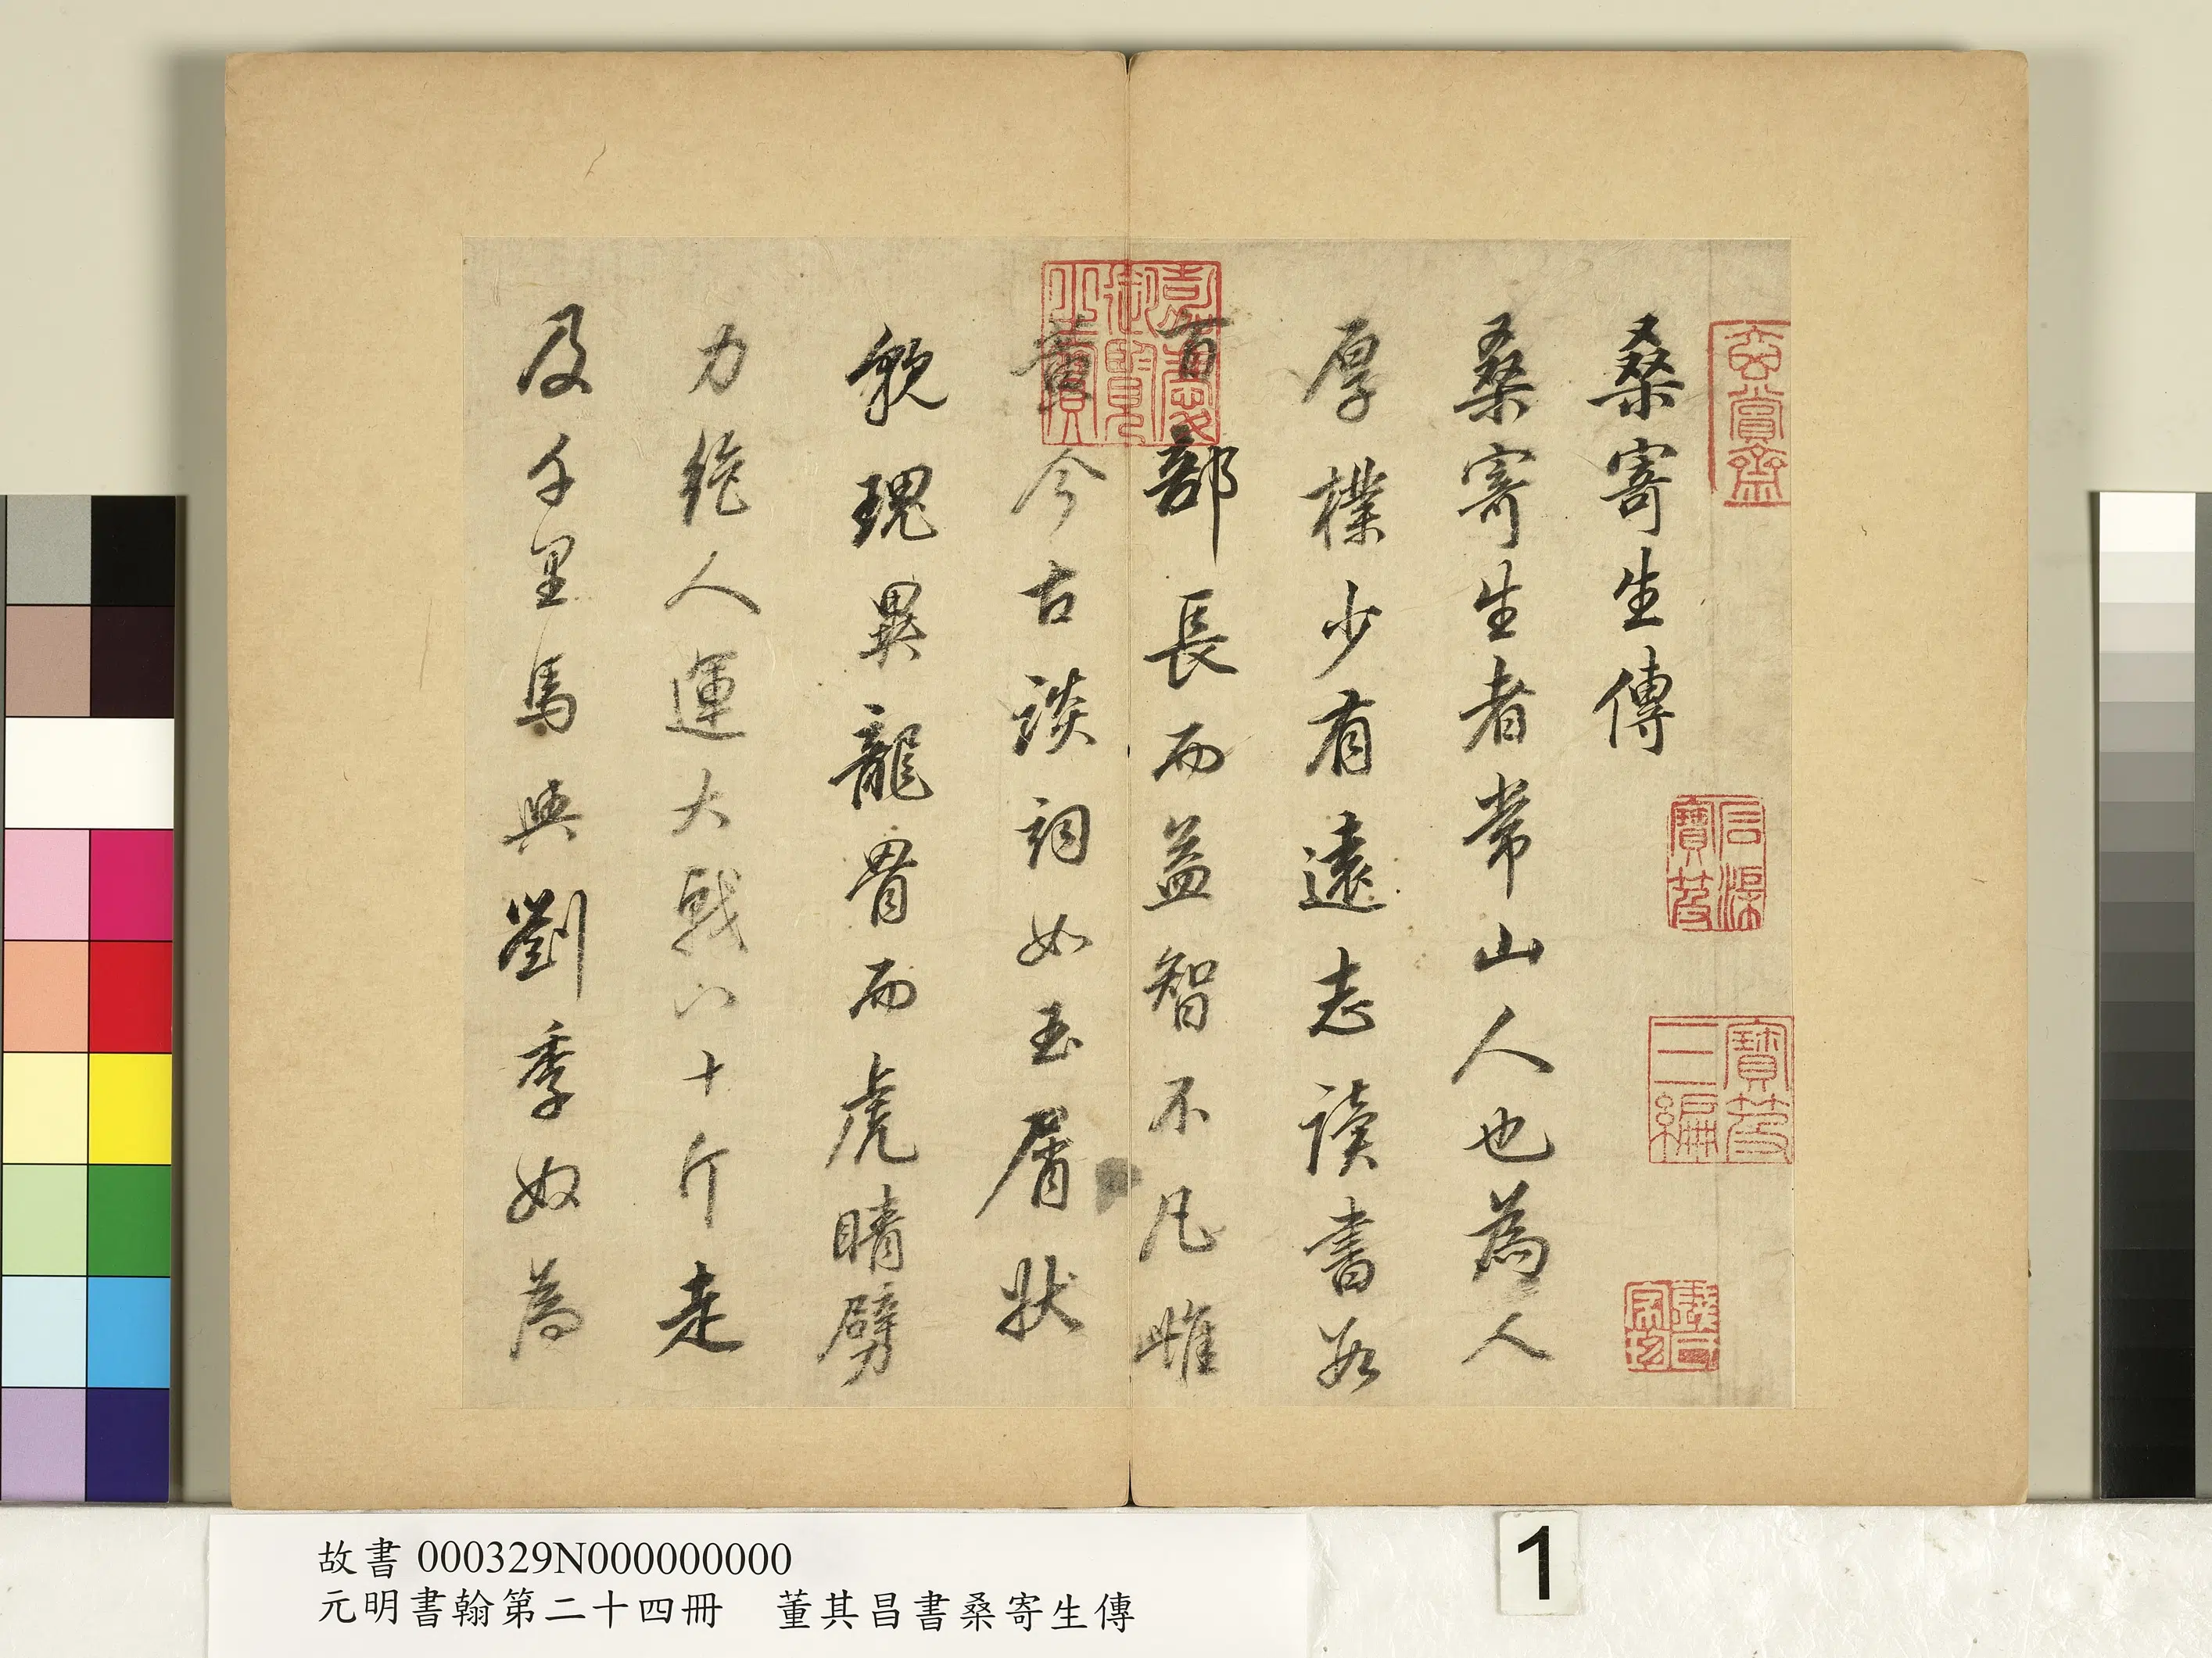 玄賞齋
石渠寶笈
寶笈三編
嘉慶御覽之寶
桑寄生傳
桑寄生者常山人也為人
厚樸少有遠志讀書数
百部長而益智不凡雌
黃今古談詞如玉屑狀
貌瑰異龍骨而虎睛劈
力絕人運大戟八十斤走
及千里馬與劉季奴為
故書 000329N000000000
元明書翰第二十四冊　董其昌書桑寄生傳
1